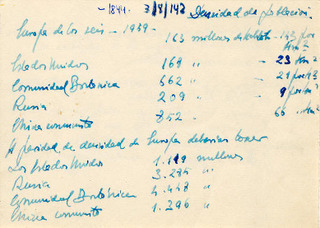 -1844. 3/4/143 Densidad de población
Europa de los seis - 1959 - 163 millones de habit. - 142 por
Km 2
Estados Unidos 168 " - 23 Km 2
Comunidad Británica 662 " - 21 por
Rusia 209 " - 9 por Km 2
China comunista 652 " - 66 Km 2
A paridad de densidad de Europa deberían tener
Los Estados Unidos 1.119 millones
Rusia "
Comunidad Británica 4.448 "
China comunista 1.396 "